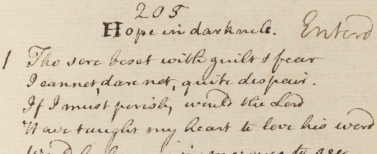 205
Hope in darkness. Enterd
1 Tho sore beset with guilt & fear
I cannot dare not, quite despair.
If I must perish, would the Lord
Have taught my heart to love his word